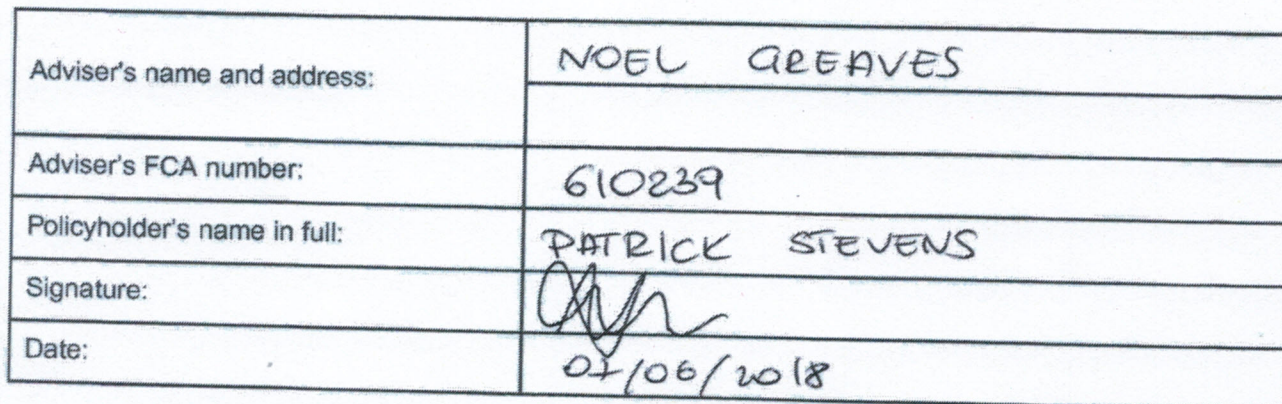 Adviser's name and address:
NOEL GREAVES
Adviser's FCA number:
610239
Policyholder's name in full:
PATRICK STEVENS
Signature:
Date:
07/06/2018